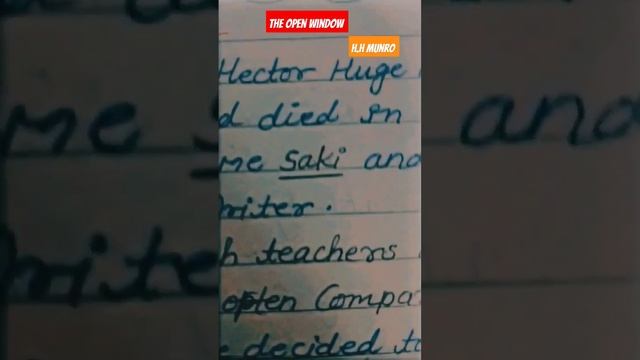 THE OPEN WINDOW
H.H MUNRO
Hector Huge
d died in
me Saki and
writer.
h teachers
often Compa
decided to